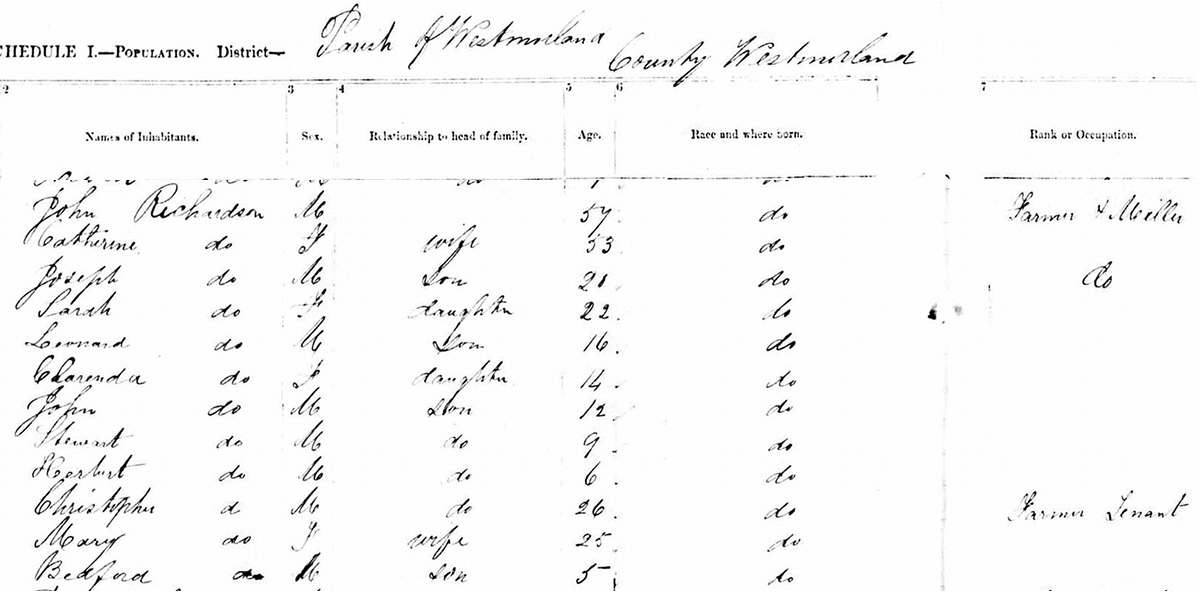 CHEDULE I.—POPULATION. District— Parish of Westmorland County Westmorland
2 3 4 5 6 7
Names of Inhabitants. Sex. Relationship to head of family. Age. Race and where born. Rank or Occupation.
John Richardson M 57 do Farmer & Miller
Catherine do F wife 53 do
Joseph do M Son 20 do do
Sarah do F daughter 22 do
Leonard do M Son 16 do
Clarender do F daughter 14 do
John do M son 12 do
Stewart do M do 9 do
Herbert do M do 6 do
Christopher d M do 26 do Farmer Tenant
Mary do F wife 25 do
Bedford do M son 5 do